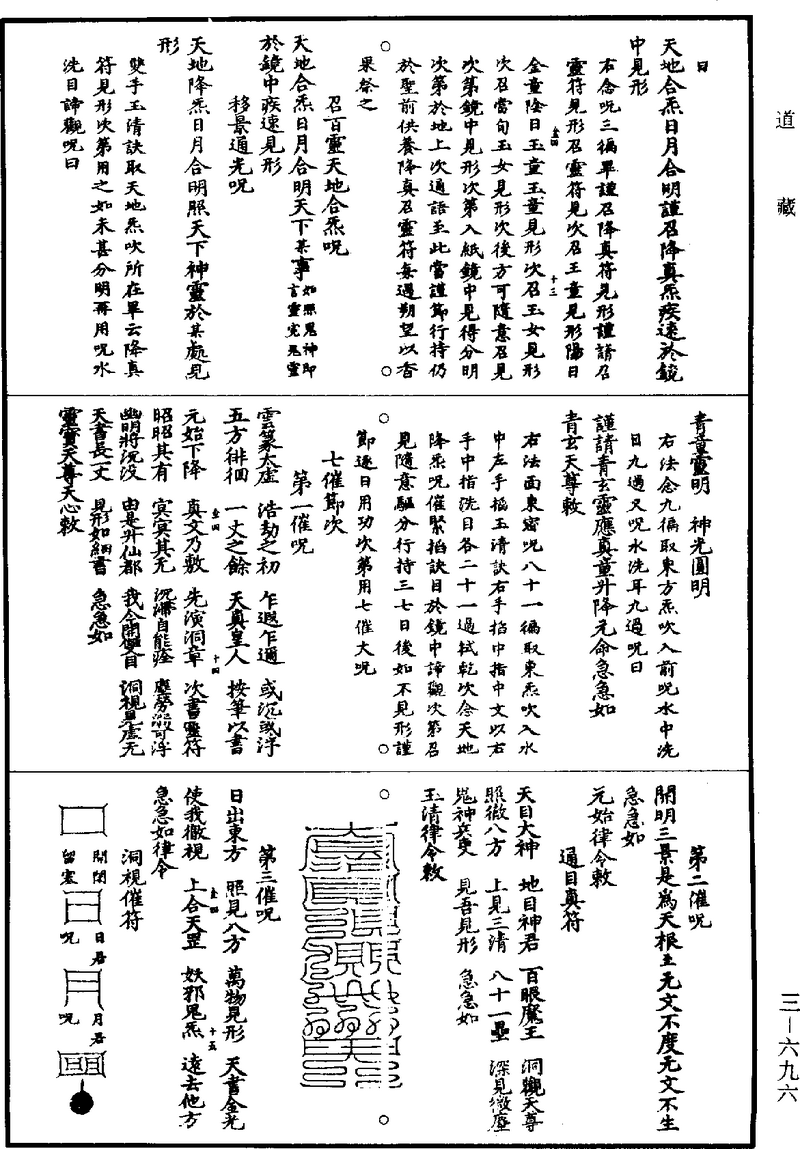 道藏
曰
天地合炁日月合明謹召降真炁疾速於鏡
中見形
右念呪三徧畢謹召降真符見形謹請召
靈符見形召靈符見次召王童見形陽日
金童陰日玉童玉童見形次召玉女見形
次召當旬玉女見形次後方可隨意召見
次第鏡中見形次第入紙鏡中見得分明
次第於地上次過語至此當謹節行持仍
於聖前供養降真召靈符每遇朔望以香
果祭之
召百靈天地合炁呪
天地合炁日月合明天下某事如照鬼神即言靈究鬼靈
於鏡中疾速見形
移景通光呪
天地降炁日月合明照天下神靈於某處見
形
雙手玉清訣取天地炁吹所在畢云降真
符見形次第用之如未甚分明再用呪水
洗目諦觀呪曰
青童靈明 神光圓明
右法念九徧取東方炁吹入前呪水中洗
目九過又呪水洗耳九過呪曰
謹請青玄靈應真童升降元命急急如
青玄天尊敕
右法面東密呪八十一徧取東炁吹入水
中左手掐玉清訣右手掐中指中文以右
手中指洗目各二十一過拭乾次念天地
降炁呪催緊掐訣目於鏡中諦觀次第召
見隨意驅分行持三七日後如不見形謹
節逐日用功次第用七催大呪
七催節次
第一催呪
雲篆太虛 浩劫之初 乍遐乍邇 或沉或浮
五方徘徊 一丈之餘 天真皇人 按筆以書
元始下降 真文乃敷 先演洞章 次書靈符
昭昭其有 冥冥其無 沉痾自能痊 塵勞溺可浮
幽明將沉沒 由是升仙都 我今開雙目 洞視見虛无
天書長一丈 見形如細書 急急如
靈寶天尊天心敕
第二催呪
開明三景是為天根上无文不度无文不生
急急如
元始律令敕
通目真符
天目大神 地目神君 百眼魔王 洞觀天尊
照徹八方 上見三清 八十一壘 深見微塵
鬼神兵吏 見吾見形 急急如
玉清律令敕
第三催呪
日出東方 照見八方 萬物見形 天書金光
使我徹視 上合天罡 妖邪鬼炁 遠去他方
急急如律令
洞視催符
開閉
留塞
日君
呪
月君
呪
三－六九六